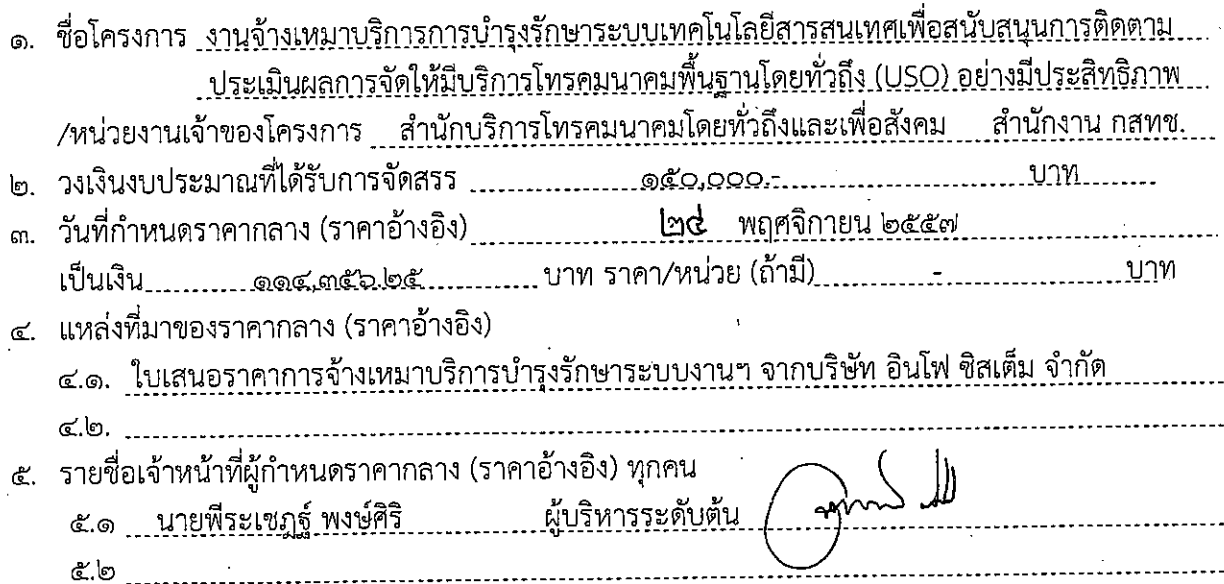 ๑. ชื่อโครงการ งานจ้างเหมาบริการการบำรุงรักษาระบบเทคโนโลยีสารสนเทศเพื่อสนับสนุนการติดตาม
ประเมินผลการจัดให้มีบริการโทรคมนาคมพื้นฐานโดยทั่วถึง (USO) อย่างมีประสิทธิภาพ
/หน่วยงานเจ้าของโครงการ สำนักบริการโทรคมนาคมโดยทั่วถึงและเพื่อสังคม สำนักงาน กสทช.
๒. วงเงินงบประมาณที่ได้รับการจัดสรร ๑๕๐,๐๐๐.- บาท
๓. วันที่กำหนดราคากลาง (ราคาอ้างอิง) ๒๔ พฤศจิกายน ๒๕๕๗
เป็นเงิน ๑๑๔,๓๕๖.๒๕ บาท ราคา/หน่วย (ถ้ามี) - บาท
๔. แหล่งที่มาของราคากลาง (ราคาอ้างอิง)
๔.๑. ใบเสนอราคาการจ้างเหมาบริการบำรุงรักษาระบบงานฯ จากบริษัท อินโฟ ซิสเต็ม จำกัด
๔.๒.
๕. รายชื่อเจ้าหน้าที่ผู้กำหนดราคากลาง (ราคาอ้างอิง) ทุกคน
๕.๑ นายพีระเชฎฐ์ พงษ์ศิริ ผู้บริหารระดับต้น
๕.๒